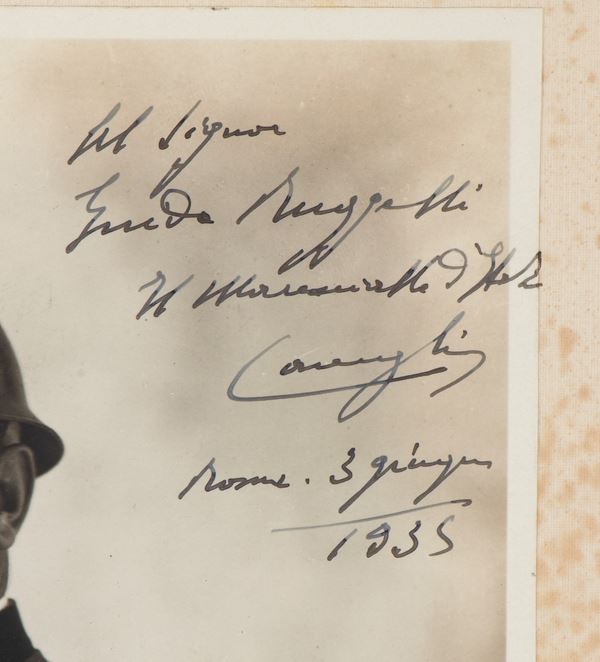 Al Signor
Guido Ruggelli
Il Maresciallo d'Ita
Caviglia
Roma. 3 giugno
1935